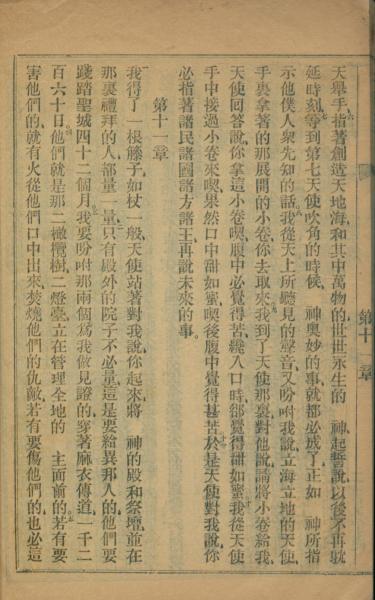 天舉手、指著創造天地海、和其中萬物的、世世永生的　神起誓說、以後不再耽
延時刻、等到第七天使吹角的時候　神奧妙的事就都必成了、正如　神所指
示他僕人衆先知的話。我從天上所聽見的聲音、又吩咐我說、立海立地的天使、
手裏拿著的那展開的小卷、你去取來。我到了天使那裏、對他說、請將小卷給我、
天使回答說、你拿這小卷喫、腹中必覺得苦、纔入口時、卻覺得甜如蜜。我從天使
手中接過小卷來喫、果然口中甜如蜜、喫後腹中覺得甚苦。於是天使對我說、你
必指著諸民諸國諸方諸王、再說未來的事。
第十一章
我得了一根籐子、如杖一般、天使站著對我說、你起來、將　神的殿和祭壇、並在
那裏禮拜的人、都量一量。只有殿外的院子不必量、這是要給異邦人的、他們要
踐踏聖城四十二個月。我要吩咐那兩個爲我做見證的、穿著麻衣傳道一千二
百六十日。他們就是那二橄欖樹、二燈臺、立在管理全地的　主面前的。若有要
害他們的、就有火從他們口中出來、焚燒他們的仇敵、若有要傷他們的、也必這
第十　章